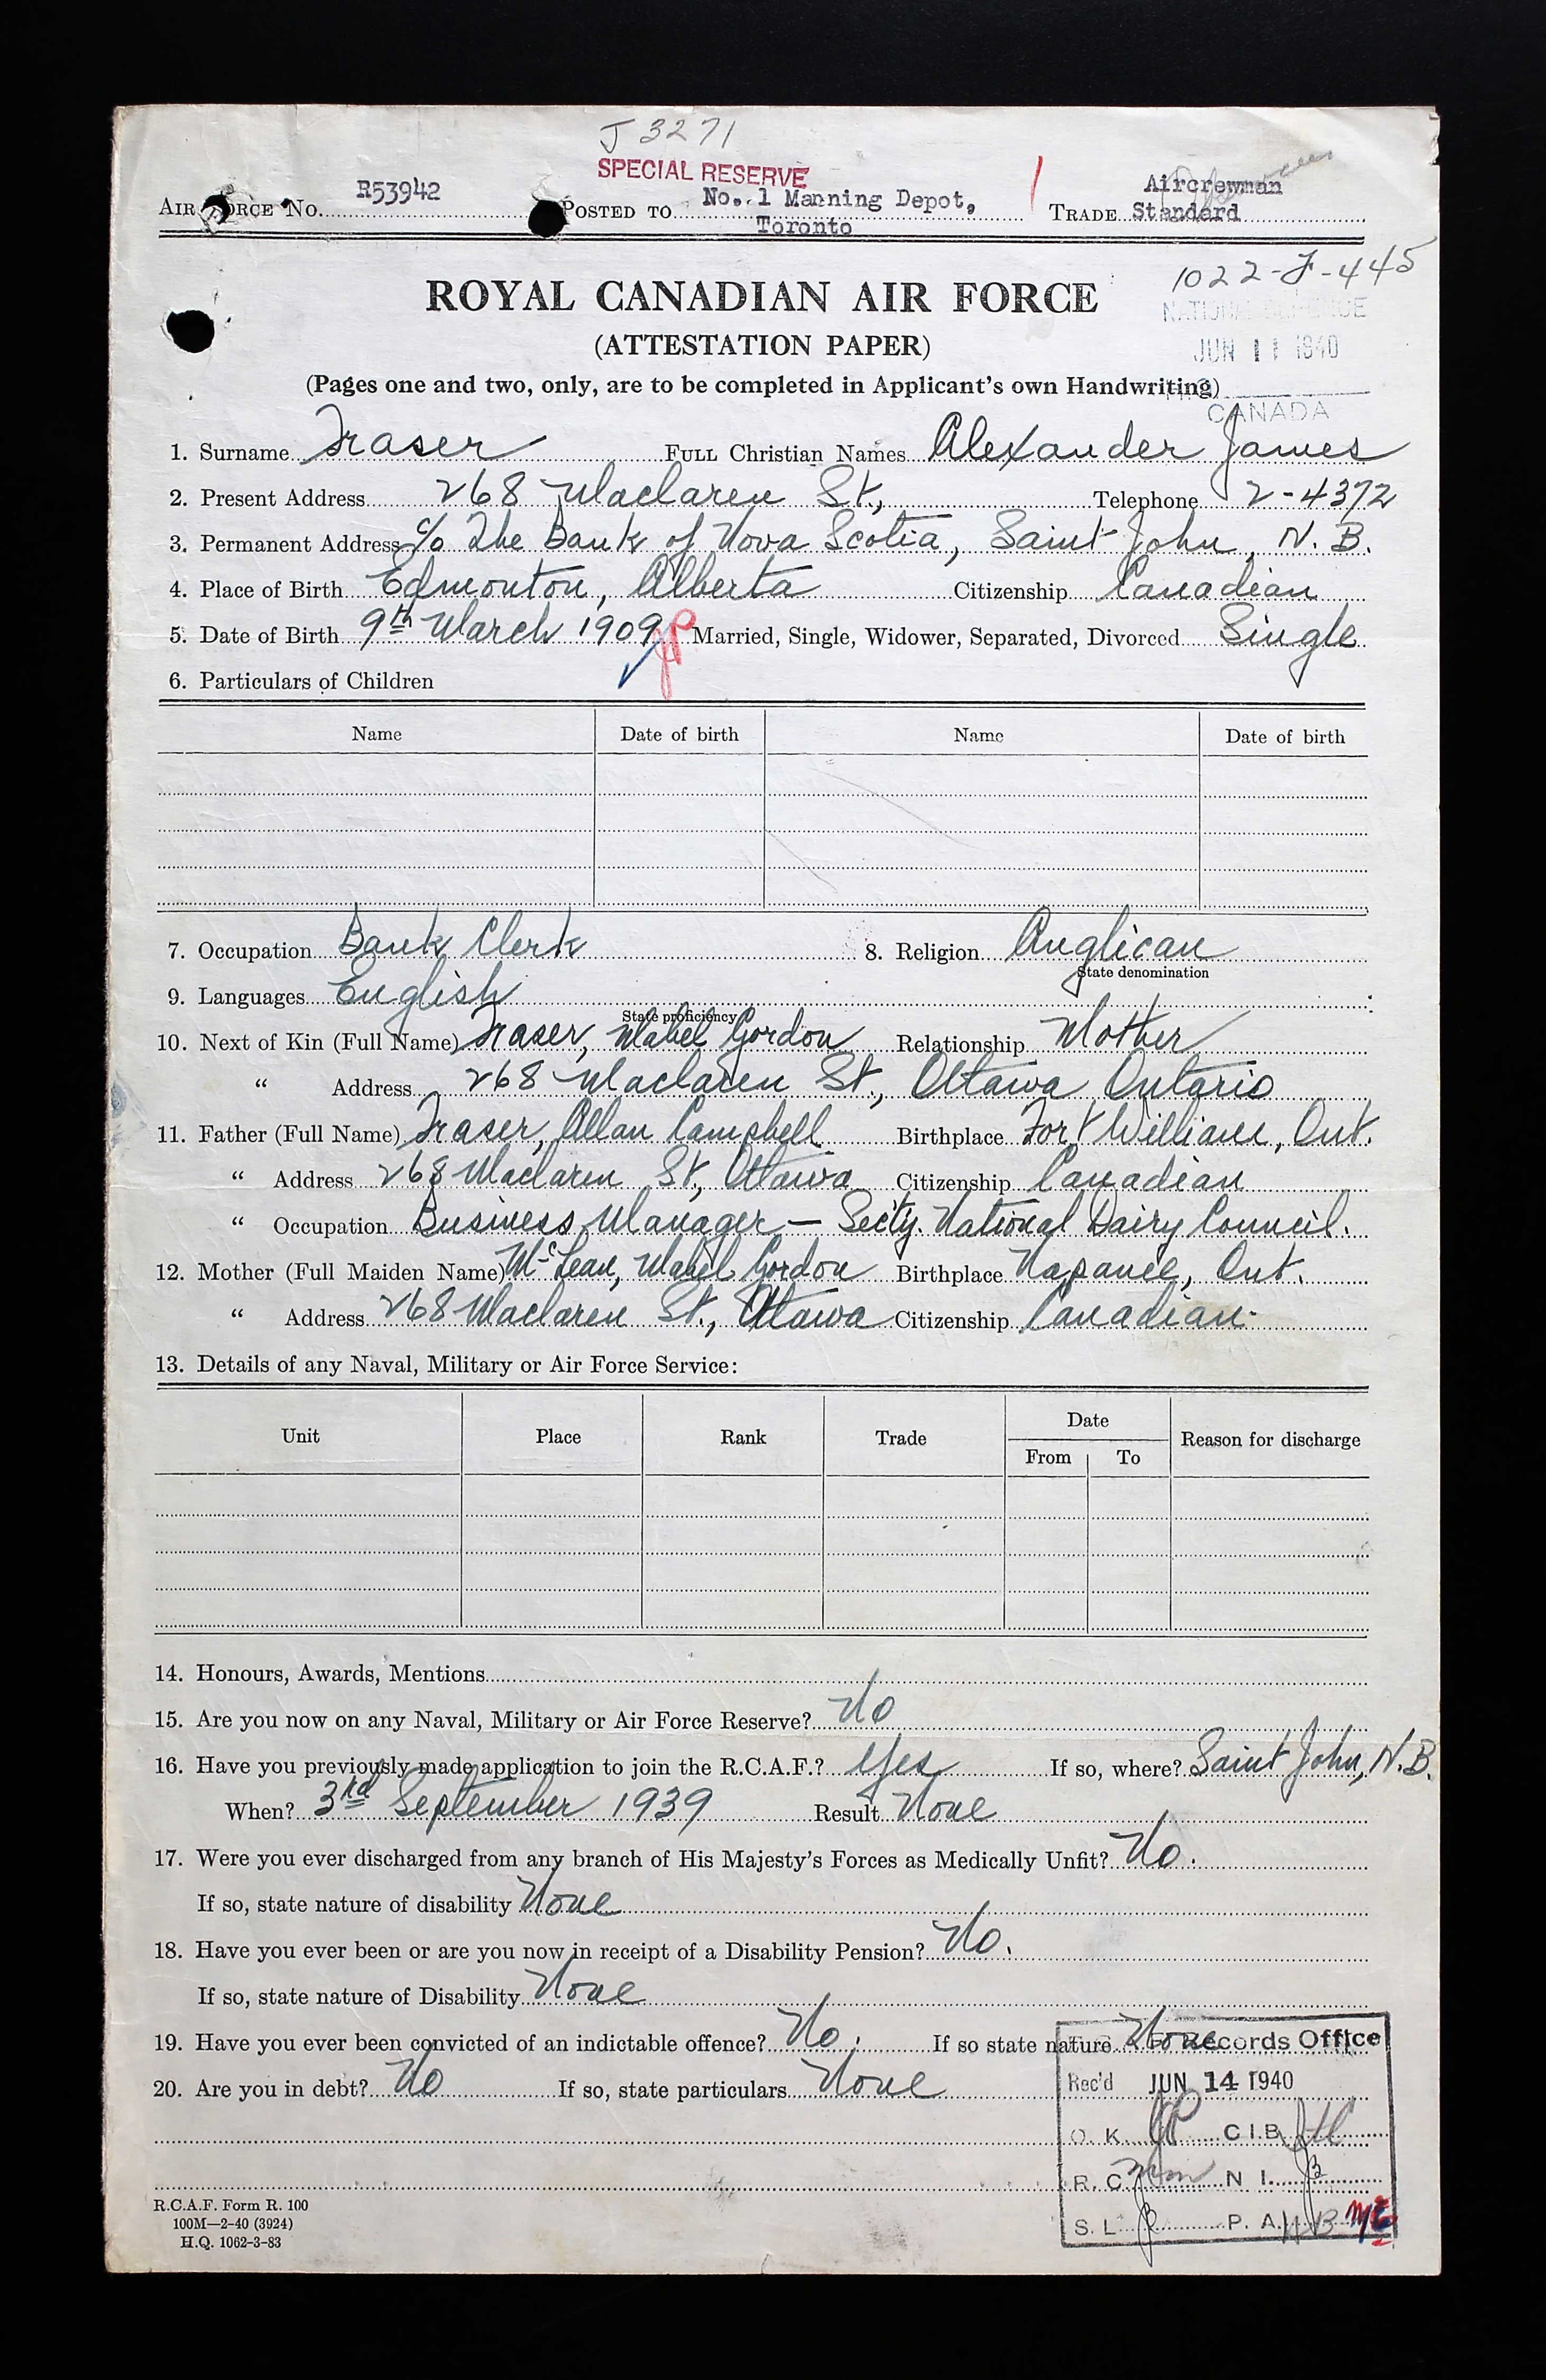 J 3271
SPECIAL RESERVE
AIR FORCE No. R53942 POSTED TO No. 1 Manning Depot, Toronto TRADE Aircrewman Standard
1022-F-445
ROYAL CANADIAN AIR FORCE
NATIONAL DEFENCE
JUN 11 1940
CANADA
(ATTESTATION PAPER)
(Pages one and two, only, are to be completed in Applicant's own Handwriting)
1. Surname Fraser FULL Christian Names Alexander James
2. Present Address 268 Maclaren St., Telephone 2-4372
3. Permanent Address c/o The Bank of Nova Scotia, Saint John, N.B.
4. Place of Birth Edmonton, Alberta Citizenship Canadian
5. Date of Birth 9th March 1909 Married, Single, Widower, Separated, Divorced Single
6. Particulars of Children
Name Date of birth Name Date of birth
7. Occupation Bank Clerk 8. Religion Anglican
State denomination
9. Languages English
State proficiency
10. Next of Kin (Full Name) Fraser, Mabel Gordon Relationship Mother
" Address 268 Maclaren St., Ottawa Ontario
11. Father (Full Name) Fraser, Allan Campbell Birthplace Fort William, Ont.
" Address 268 Maclaren St., Ottawa Citizenship Canadian
" Occupation Business Manager — Sec'ty. National Dairy Council.
12. Mother (Full Maiden Name) McLean, Mabel Gordon Birthplace Napanee, Ont.
" Address 268 Maclaren St., Ottawa Citizenship Canadian
13. Details of any Naval, Military or Air Force Service:
Unit Place Rank Trade Date Reason for discharge
From To
14. Honours, Awards, Mentions
15. Are you now on any Naval, Military or Air Force Reserve? No
16. Have you previously made application to join the R.C.A.F.? Yes If so, where? Saint John, N.B.
When? 3rd September 1939 Result None
17. Were you ever discharged from any branch of His Majesty's Forces as Medically Unfit? No.
If so, state nature of disability None
18. Have you ever been or are you now in receipt of a Disability Pension? No.
If so, state nature of Disability None
19. Have you ever been convicted of an indictable offence? No. If so state nature None
20. Are you in debt? No If so, state particulars None
Records Office
Rec'd JUN 14 1940
O. K. JP C I.B.
R. C. N I. B
S. L. B P. A.
R.C.A.F. Form R. 100
100M—2-40 (3924)
H.Q. 1062-3-83